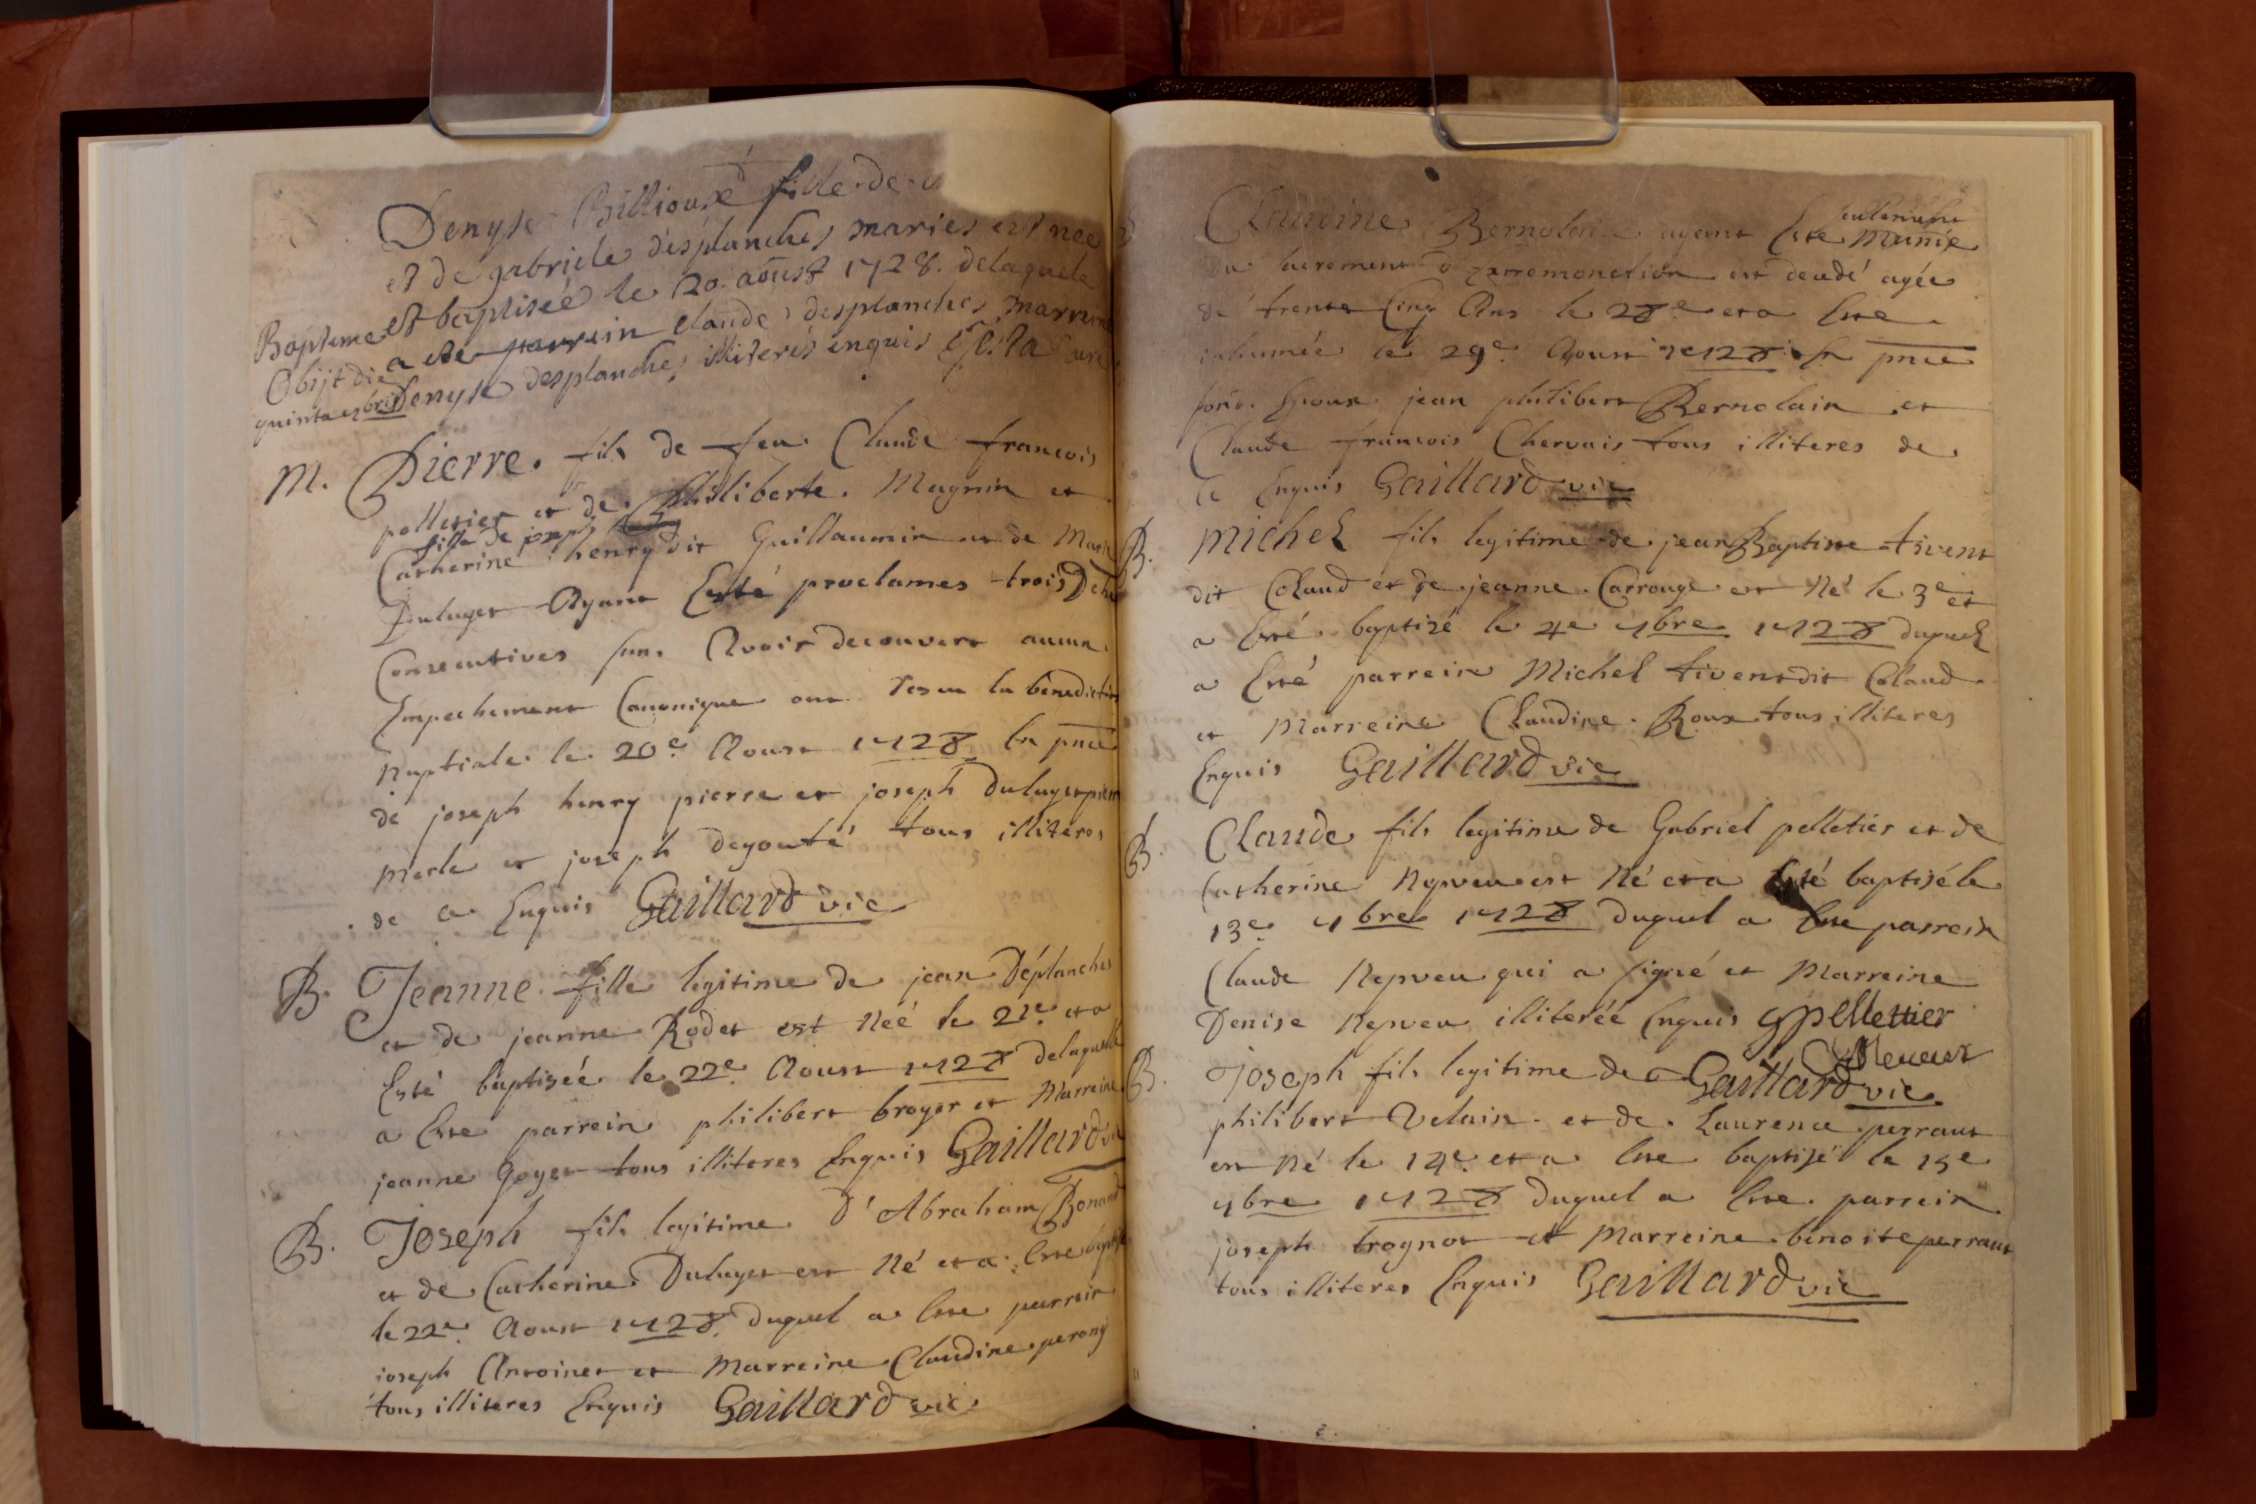 Denyse Billioux fille de
et de gabriele desplanches mariés est née
Bapteme et baptisée le 20 aoust 1728. delaquele
Obijt die a ete parrein claude desplanches marrine
quinta 7bris Denyse desplanches illiterés enquis Curé
M. Pierre. fils de feu Claude francois
pelletier et de philiberte. Magnin et
fille de joseph
Catherine henry dit Guillaumin et de Marie
Duluyet Ayant Esté proclames trois
Consecutives sans Avoir decouvert aucun
Empechement Canonique ont receu la benediction
Nuptiale le 20e Aoust 1728 En pnce
de joseph henry pierre et joseph Duluyet pierre
merle et joseph degouté tous illiteres
de ce Enquis Gaillard vic
B. Jeanne fille legitime de jean Déplanches
et de jeanne Rodet est Neé le 21e et a
Esté baptisée le 22e Aoust 1728 delaquelle
a Esté parrein philibert broyer et Marreine
jeanne Goyet tous illiteres Enquis Gaillard vic
B. Joseph fils legitime D'Abraham Bonand
et de Catherine Duluyet est Né et a Esté baptisé
le 22e Aoust 1728. duquel a Esté parrein
joseph Antoinet et Marreine Claudine perony
tous illiteres Enquis Gaillard vic
seulement
Claudine Bernolain ayant Esté Munie
du sacrement d'extremonction est decedé agée
de trente Cinq Ans le 28e et a Esté
inhumée le 29e Aoust 1728 En pnce
son Epoux jean philibert Bernolain et
Claude francois Chervais tous illiteres de
ce Enquis Gaillard vic
B. Michel fils legitime de jean Baptiste tivent
dit Coland et de jeanne Carrouge est Né le 3e et
a Esté baptizé le 4e 7bre 1728 duquel
a Esté parrein Michel tivent dit Coland
et Marreine Claudine Roux tous illiteres
Enquis Gaillard vic
B. Claude fils legitime de Gabriel pelletier et de
Catherine Nepveu est Né et a Esté baptisé le
13e 7bre 1728 Duquel a Esté parrein
Claude Nepveu qui a signé et Marreine
Denise Nepveu illiterée Enquis gpellettier
B. Joseph fils legitime de Gaillard vic
philibert Velain et de Laurence perraut
est Né le 14e et a Esté baptizé le 15e
7bre 1728 Duquel a Esté parrein
joseph trognot et Marreine benoite perraut
tous illiteres Enquis Gaillard vic